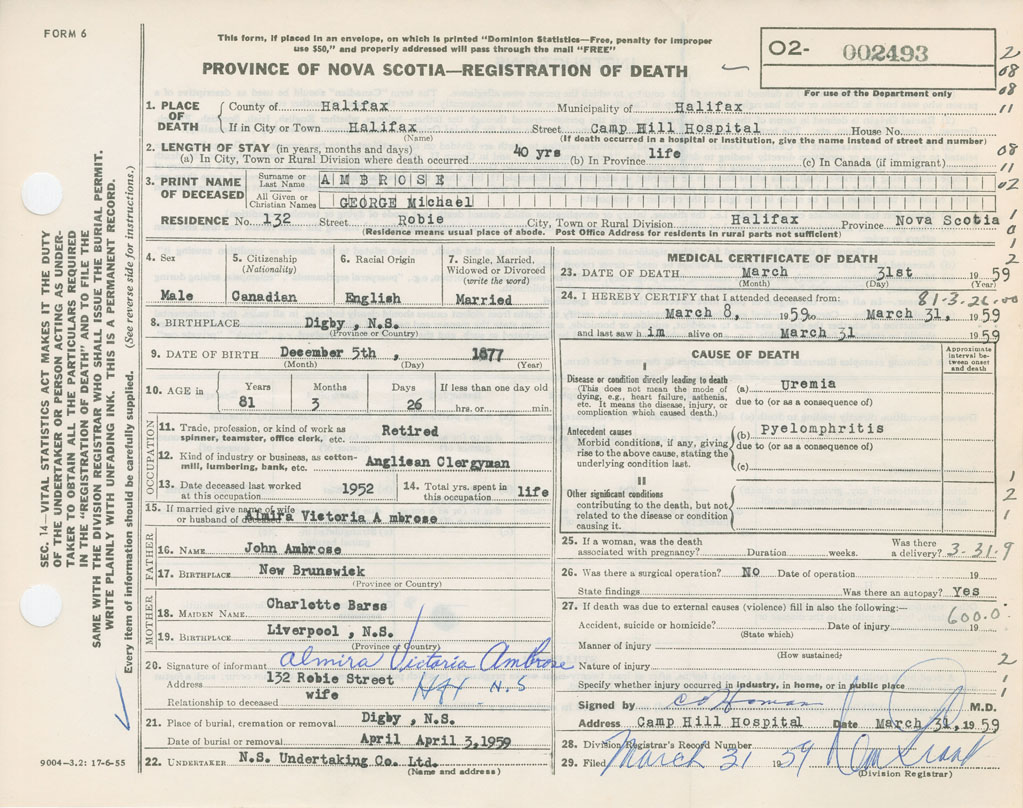 FORM 6
This form, if placed in an envelope, on which is printed "Dominion Statistics—Free, penalty for improper
use $50," and properly addressed will pass through the mail "FREE"
PROVINCE OF NOVA SCOTIA—REGISTRATION OF DEATH
O2- 002493
For use of the Department only
SEC. 14—VITAL STATISTICS ACT MAKES IT THE DUTY
OF THE UNDERTAKER OR PERSON ACTING AS UNDER-
TAKER TO OBTAIN ALL THE PARTICULARS REQUIRED
IN THE "REGISTRATION OF DEATH" AND TO FILE THE
SAME WITH THE DIVISION REGISTRAR WHO SHALL ISSUE THE BURIAL PERMIT.
WRITE PLAINLY WITH UNFADING INK. THIS IS A PERMANENT RECORD.
Every item of information should be carefully supplied. (See reverse side for instructions.)
1. PLACE OF DEATH County of Halifax Municipality of Halifax
If in City or Town Halifax Street Camp Hill Hospital House No.
(Name) (If death occurred in a hospital or institution, give the name instead of street and number)
2. LENGTH OF STAY (in years, months and days)
(a) In City, Town or Rural Division where death occurred 40 yrs (b) In Province life (c) In Canada (if immigrant)
3. PRINT NAME OF DECEASED Surname or Last Name AMBROSE
All Given or Christian Names GEORGE Michael
RESIDENCE No. 132 Street Robie City, Town or Rural Division Halifax Province Nova Scotia
(Residence means usual place of abode. Post Office Address for residents in rural parts not sufficient)
2
08
08
11
08
11
02
1
0
1
2
4. Sex 5. Citizenship 6. Racial Origin 7. Single, Married,
(Nationality) Widowed or Divorced
(write the word)
Male Canadian English Married
8. BIRTHPLACE Digby, N.S.
(Province or Country)
9. DATE OF BIRTH December 5th, 1877
(Month) (Day) (Year)
10. AGE in Years Months Days If less than one day old
81 3 26 hrs. or min.
OCCUPATION
11. Trade, profession, or kind of work as
spinner, teamster, office clerk, etc. Retired
12. Kind of industry or business, as cotton-
mill, lumbering, bank, etc. Anglisan Clergyman
13. Date deceased last worked
at this occupation 1952
14. Total yrs. spent in
this occupation life
15. If married give name of wife
or husband of deceased Almira Victoria A mbrose
FATHER
16. NAME John Ambrose
17. BIRTHPLACE New Brunswick
(Province or Country)
MOTHER
18. MAIDEN NAME Charlotte Barss
19. BIRTHPLACE Liverpool, N.S.
(Province or Country)
20. Signature of informant Almira Victoria Ambrose
Address 132 Robie Street Hfx N.S
Relationship to deceased wife
21. Place of burial, cremation or removal Digby, N.S.
Date of burial or removal April April 3,1959
22. UNDERTAKER N.S. Undertaking Co. Ltd.
(Name and address)
9004-3.2: 17-6-55
MEDICAL CERTIFICATE OF DEATH
23. DATE OF DEATH March 31st 1959
(Month) (Day) (Year)
24. I HEREBY CERTIFY that I attended deceased from: 81-3-26-00
March 8, 1959 to March 31, 1959
and last saw h im alive on March 31 1959
CAUSE OF DEATH
Approximate interval between onset and death
I
Disease or condition directly leading to death
(This does not mean the mode of
dying, e.g., heart failure, asthenia,
etc. It means the disease, injury, or
complication which caused death.)
(a) Uremia
due to (or as a consequence of)
Antecedent causes
Morbid conditions, if any, giving
rise to the above cause, stating the
underlying condition last.
(b) Pyelomphritis
due to (or as a consequence of)
(c)
II
Other significant conditions
contributing to the death, but not
related to the disease or condition
causing it.
1
2
1
25. If a woman, was the death
associated with pregnancy? Duration weeks. Was there
a delivery? 3-31-9
26. Was there a surgical operation? No Date of operation 19
State findings Was there an autopsy? Yes
27. If death was due to external causes (violence) fill in also the following:— 600.0
Accident, suicide or homicide? Date of injury 19
(State which)
Manner of injury
(How sustained)
Nature of injury
2
Specify whether injury occurred in industry, in home, or in public place
1
1
Signed by M.D.
Address Camp Hill Hospital Date March 31, 1959
28. Division Registrar's Record Number
29. Filed March 31 1959
(Division Registrar)